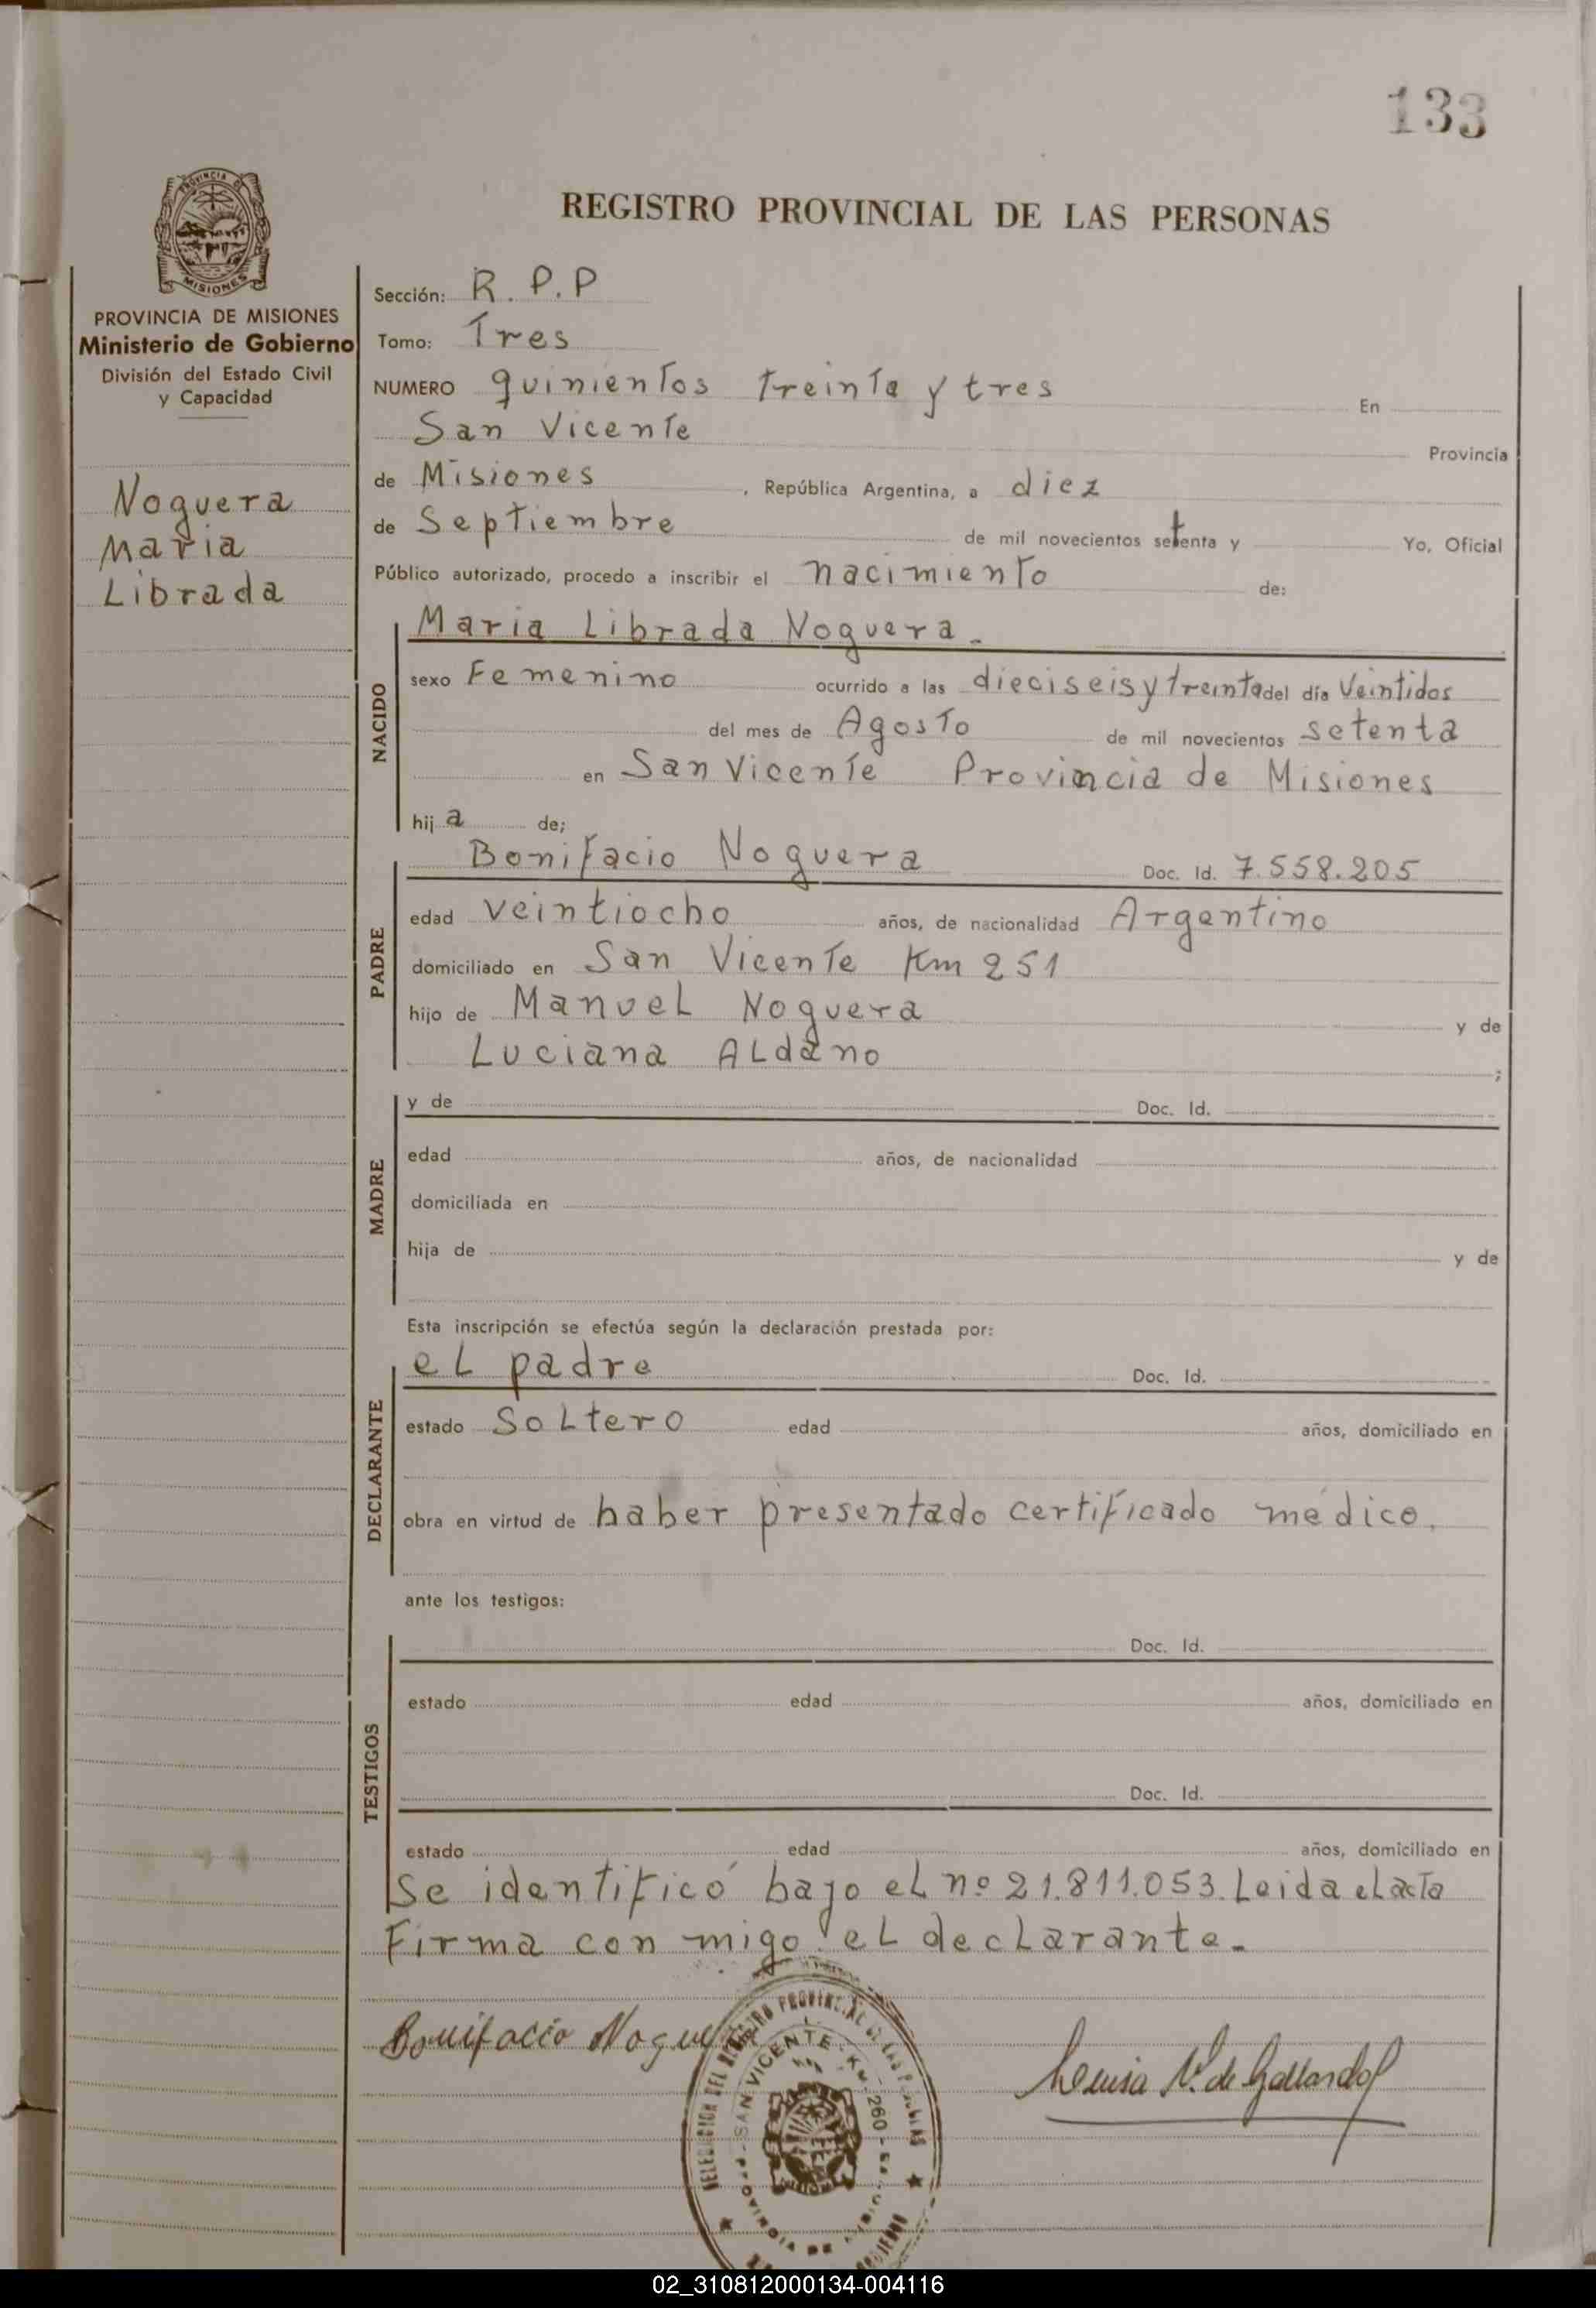 133
PROVINCIA DE
MISIONES
REGISTRO PROVINCIAL DE LAS PERSONAS
PROVINCIA DE MISIONES
Ministerio de Gobierno
División del Estado Civil
y Capacidad
Noguera
Maria
Librada
Sección: R. P. P
Tomo: Tres
NUMERO quinientos treinta y tres En
San Vicente Provincia
de Misiones, República Argentina, a diez
de Septiembre de mil novecientos setenta y Yo, Oficial
Público autorizado, procedo a inscribir el nacimiento de:
NACIDO
Maria Librada Noguera.
sexo Femenino ocurrido a las dieciseis y treinta del día Veintidos
del mes de Agosto de mil novecientos setenta
en San Vicente Provincia de Misiones
hija de;
PADRE
Bonifacio Noguera Doc. Id. 7.558.205
edad veintiocho años, de nacionalidad Argentino
domiciliado en San Vicente Km 251
hijo de Manuel Noguera y de
Luciana ALdano ;
MADRE
y de Doc. Id.
edad años, de nacionalidad
domiciliada en
hija de y de
Esta inscripción se efectúa según la declaración prestada por:
DECLARANTE
eL padre Doc. Id.
estado SoLtero edad años, domiciliado en
obra en virtud de haber presentado certificado médico.
ante los testigos:
TESTIGOS
Doc. Id.
estado edad años, domiciliado en
Doc. Id.
estado edad años, domiciliado en
Se identificó bajo eL nº 21.811.053. Leida eL acta
Firma con migo eL decLarante.
Bonifacio Noguera
DELEGACION DEL REGISTRO PROVINCIAL DE LAS PERSONAS
SAN VICENTE - Km. 260 -
PROVINCIA DE
Luisa V. de Gallardo
02_310812000134-004116